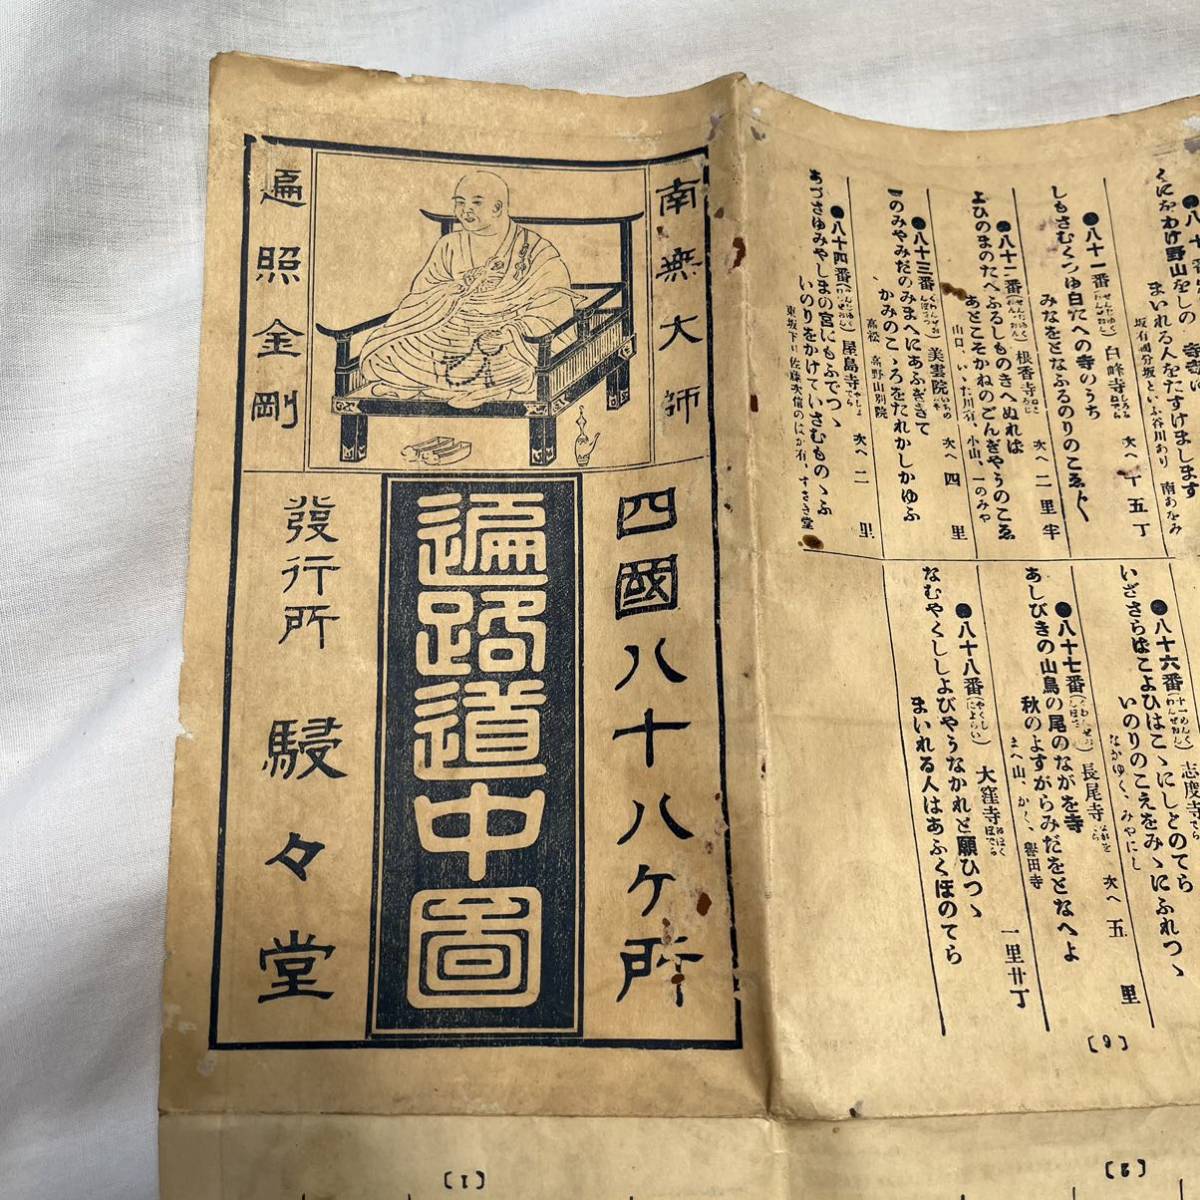 南無大師
遍照金剛
四國八十八ケ所
遍路道中圖
發行所 駸々堂
くにをわけ野山をしの
まいれる人をたすけまします
坂有國分坂といふ谷川あり 南あをみ
●八十一番 白峰寺 次へ 十五丁
しもさむくつゆ白たへの寺のうち
みなをとなふるのりのこゑ〴〵
●八十二番 根香寺 次へ 二里半
よひのまのたへふるしものきへぬれは
あとこそかねのごんぎやうのこゑ
山口、い、た川有、小山、一のみや
●八十三番 一の宮 次へ 四里
一のみやみだのみまへにあふぎきて
かみのこゝろをたれかしかゆふ
高松 高野山別院
●八十四番 屋島寺 次へ 二里
あづさゆみやしまの宮にもふでつゝ
いのりをかけていさむものゝふ
東坂下り佐藤次信のはか有、すさき堂
●八十六番 志度寺
いざさらばこよひはこゝにしどのてら
いのりのこえをみゝにふれつゝ
なかゆく、みやにし
●八十七番 長尾寺 次へ 五里
あしびきの山鳥の尾のながを寺
秋のよすがらみだをとなへよ
まへ山、かく、譽田寺
●八十八番(やくしによらい) 大窪寺 一里廿丁
なむやくししよびやうなかれと願ひつゝ
まいれる人はあふくぼのてら
[9]
[1]
[2]